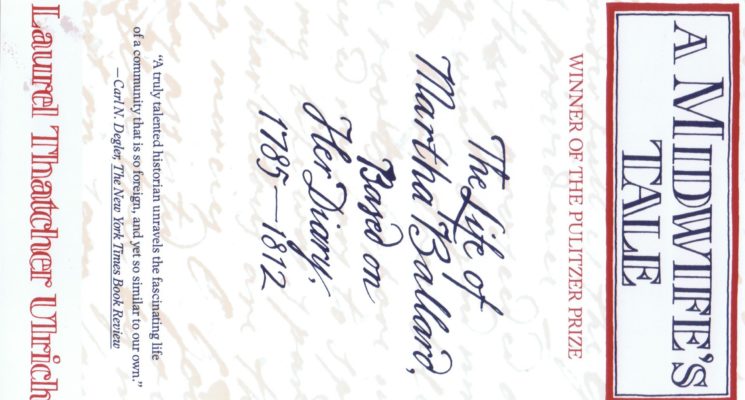 A MIDWIFE'S
TALE
WINNER OF THE PULITZER PRIZE
The Life of
Martha Ballard,
Based on
Her Diary,
1785—1812
"A truly talented historian unravels the fascinating life
of a community that is so foreign, and yet so similar to our own."
—Carl N. Degler, The New York Times Book Review
Laurel Thatcher Ulrich